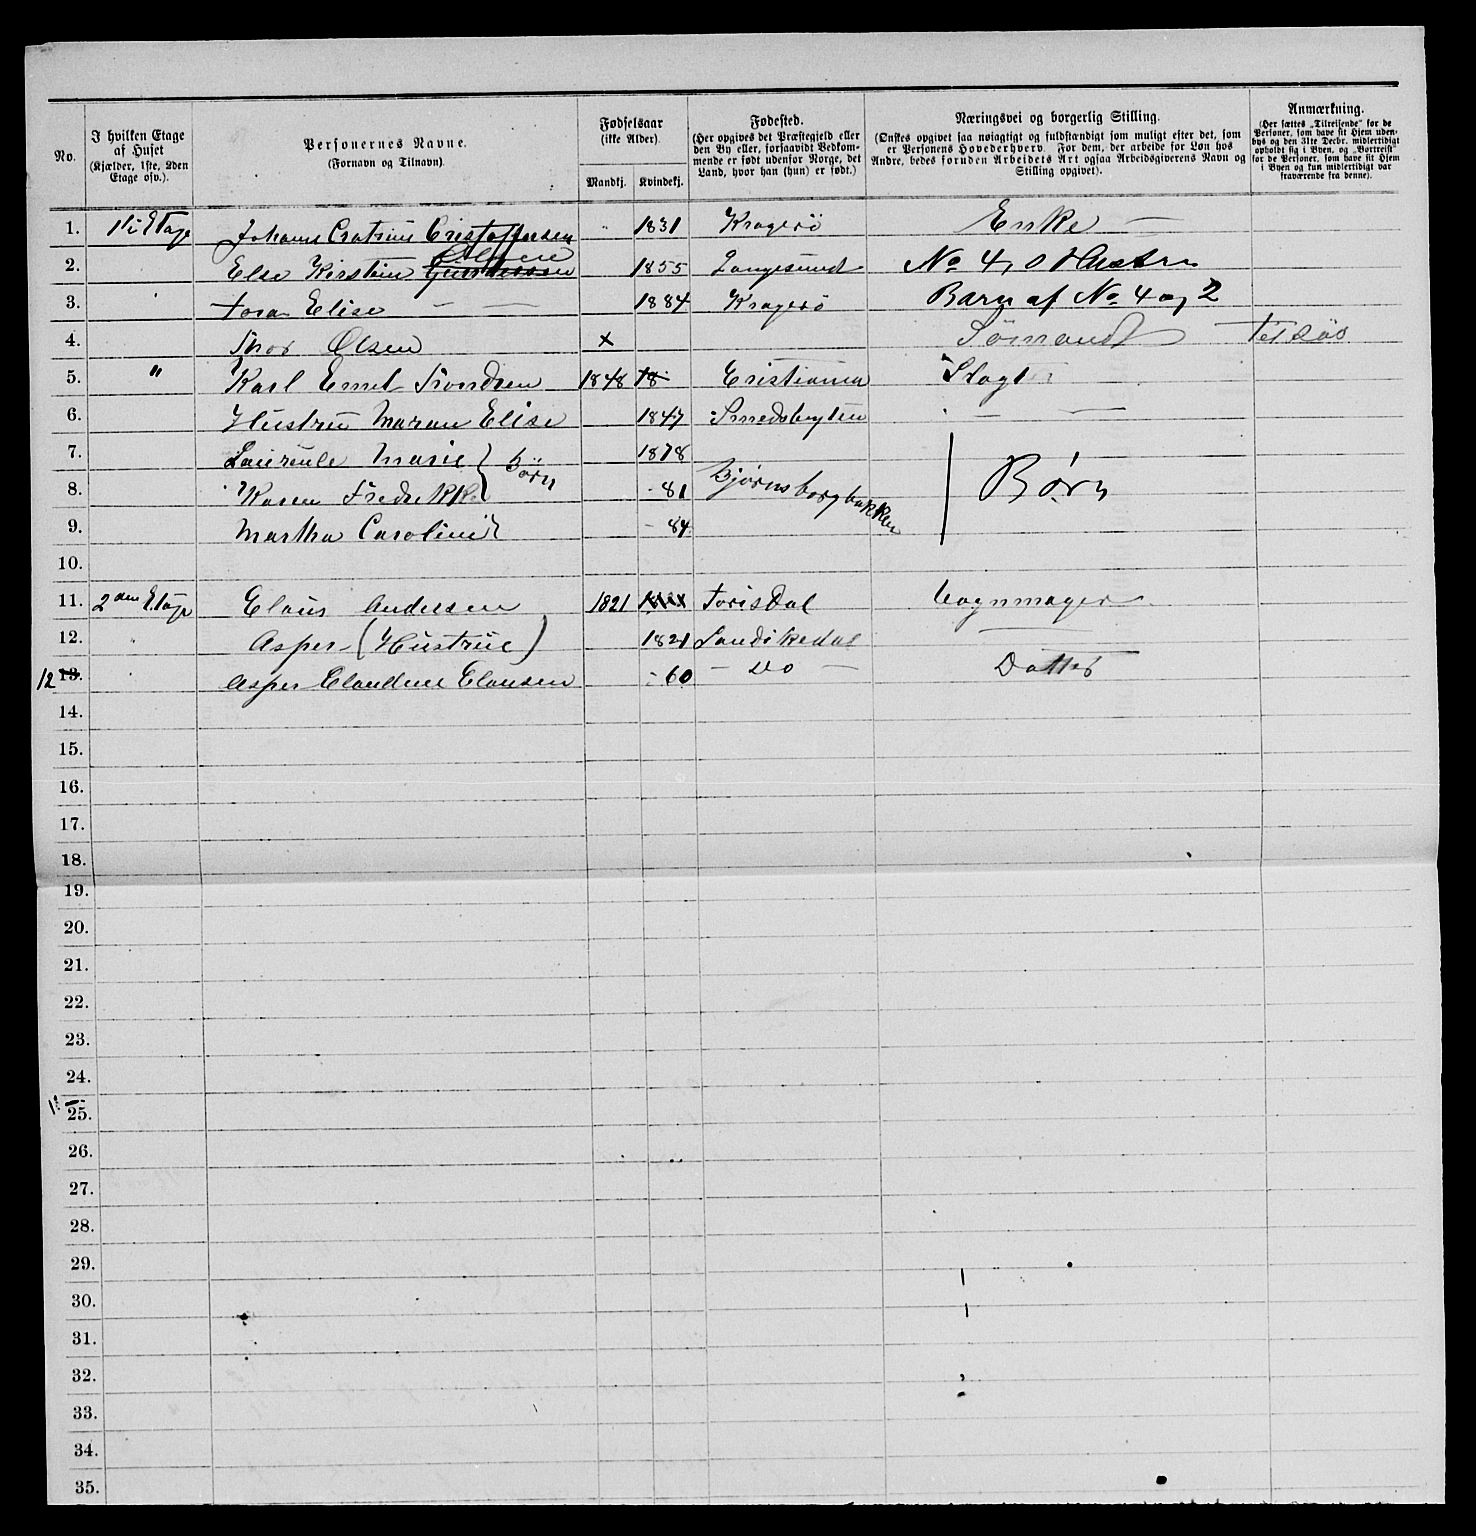 No.
I hvilken Etage af Huset (Kjælder, 1ste, 2den Etage osv.).
Personernes Navne. (Fornavn og Tilnavn).
Fødselsaar (ikke Alder). Mandkj. Kvindekj.
Fødested. (Her opgives det Præstegjeld eller den By eller, forsaavidt Vedkommende er født udenfor Norge, det Land, hvor han (hun) er født.)
Næringsvei og borgerlig Stilling. (Ønskes opgivet saa nøiagtigt og fuldstændigt som muligt efter det, som er Personens Hovederhverv. For dem, der arbeide for Løn hos Andre, bedes foruden Arbeidets Art ogsaa Arbeidsgiverens Navn og Stilling opgivet).
Anmærkning. (Her sættes „Tilreisende“ for de Personer, som have sit Hjem udenbys og den 31te Decbr. midlertidigt opholdt sig i Byen, og „Bortreist“ for de Personer, som have sit Hjem i Byen og kun midlertidigt var fraværende fra denne).
1. 1ste Etage Johanne Catrine Cristoffersen 1831 Kragerö Enke —
2. Else Kirstine Olsen 1855 Langesund No 4, o Hustru
3. Tora Elise — — 1884 Kragerö Barn af No 4 og 2
4. Thor Olsen x Sömand Til Sös
5. " Karl Emil Trondsen 1848 18 Cristiania
6. Hustru Maran Elise 1847 Smedsbugten — —
7. Laurenze Marie } Börn 1878
8. Karen Fredrikke 81 Bjørnsborgbakken Børn
9. Martha Caroline } - 84
10.
11. 2den Etage Claus Andersen 1821 Torisdal Vognmager
12. Asper (Hustrue) 1821 Sandökedal
12 13. Asper Claudine Clausen - 60 — Do — Datter
14.
15.
16.
17.
18.
19.
20.
21.
22.
23.
24.
25.
26.
27.
28.
29.
30.
31.
32.
33.
34.
35.